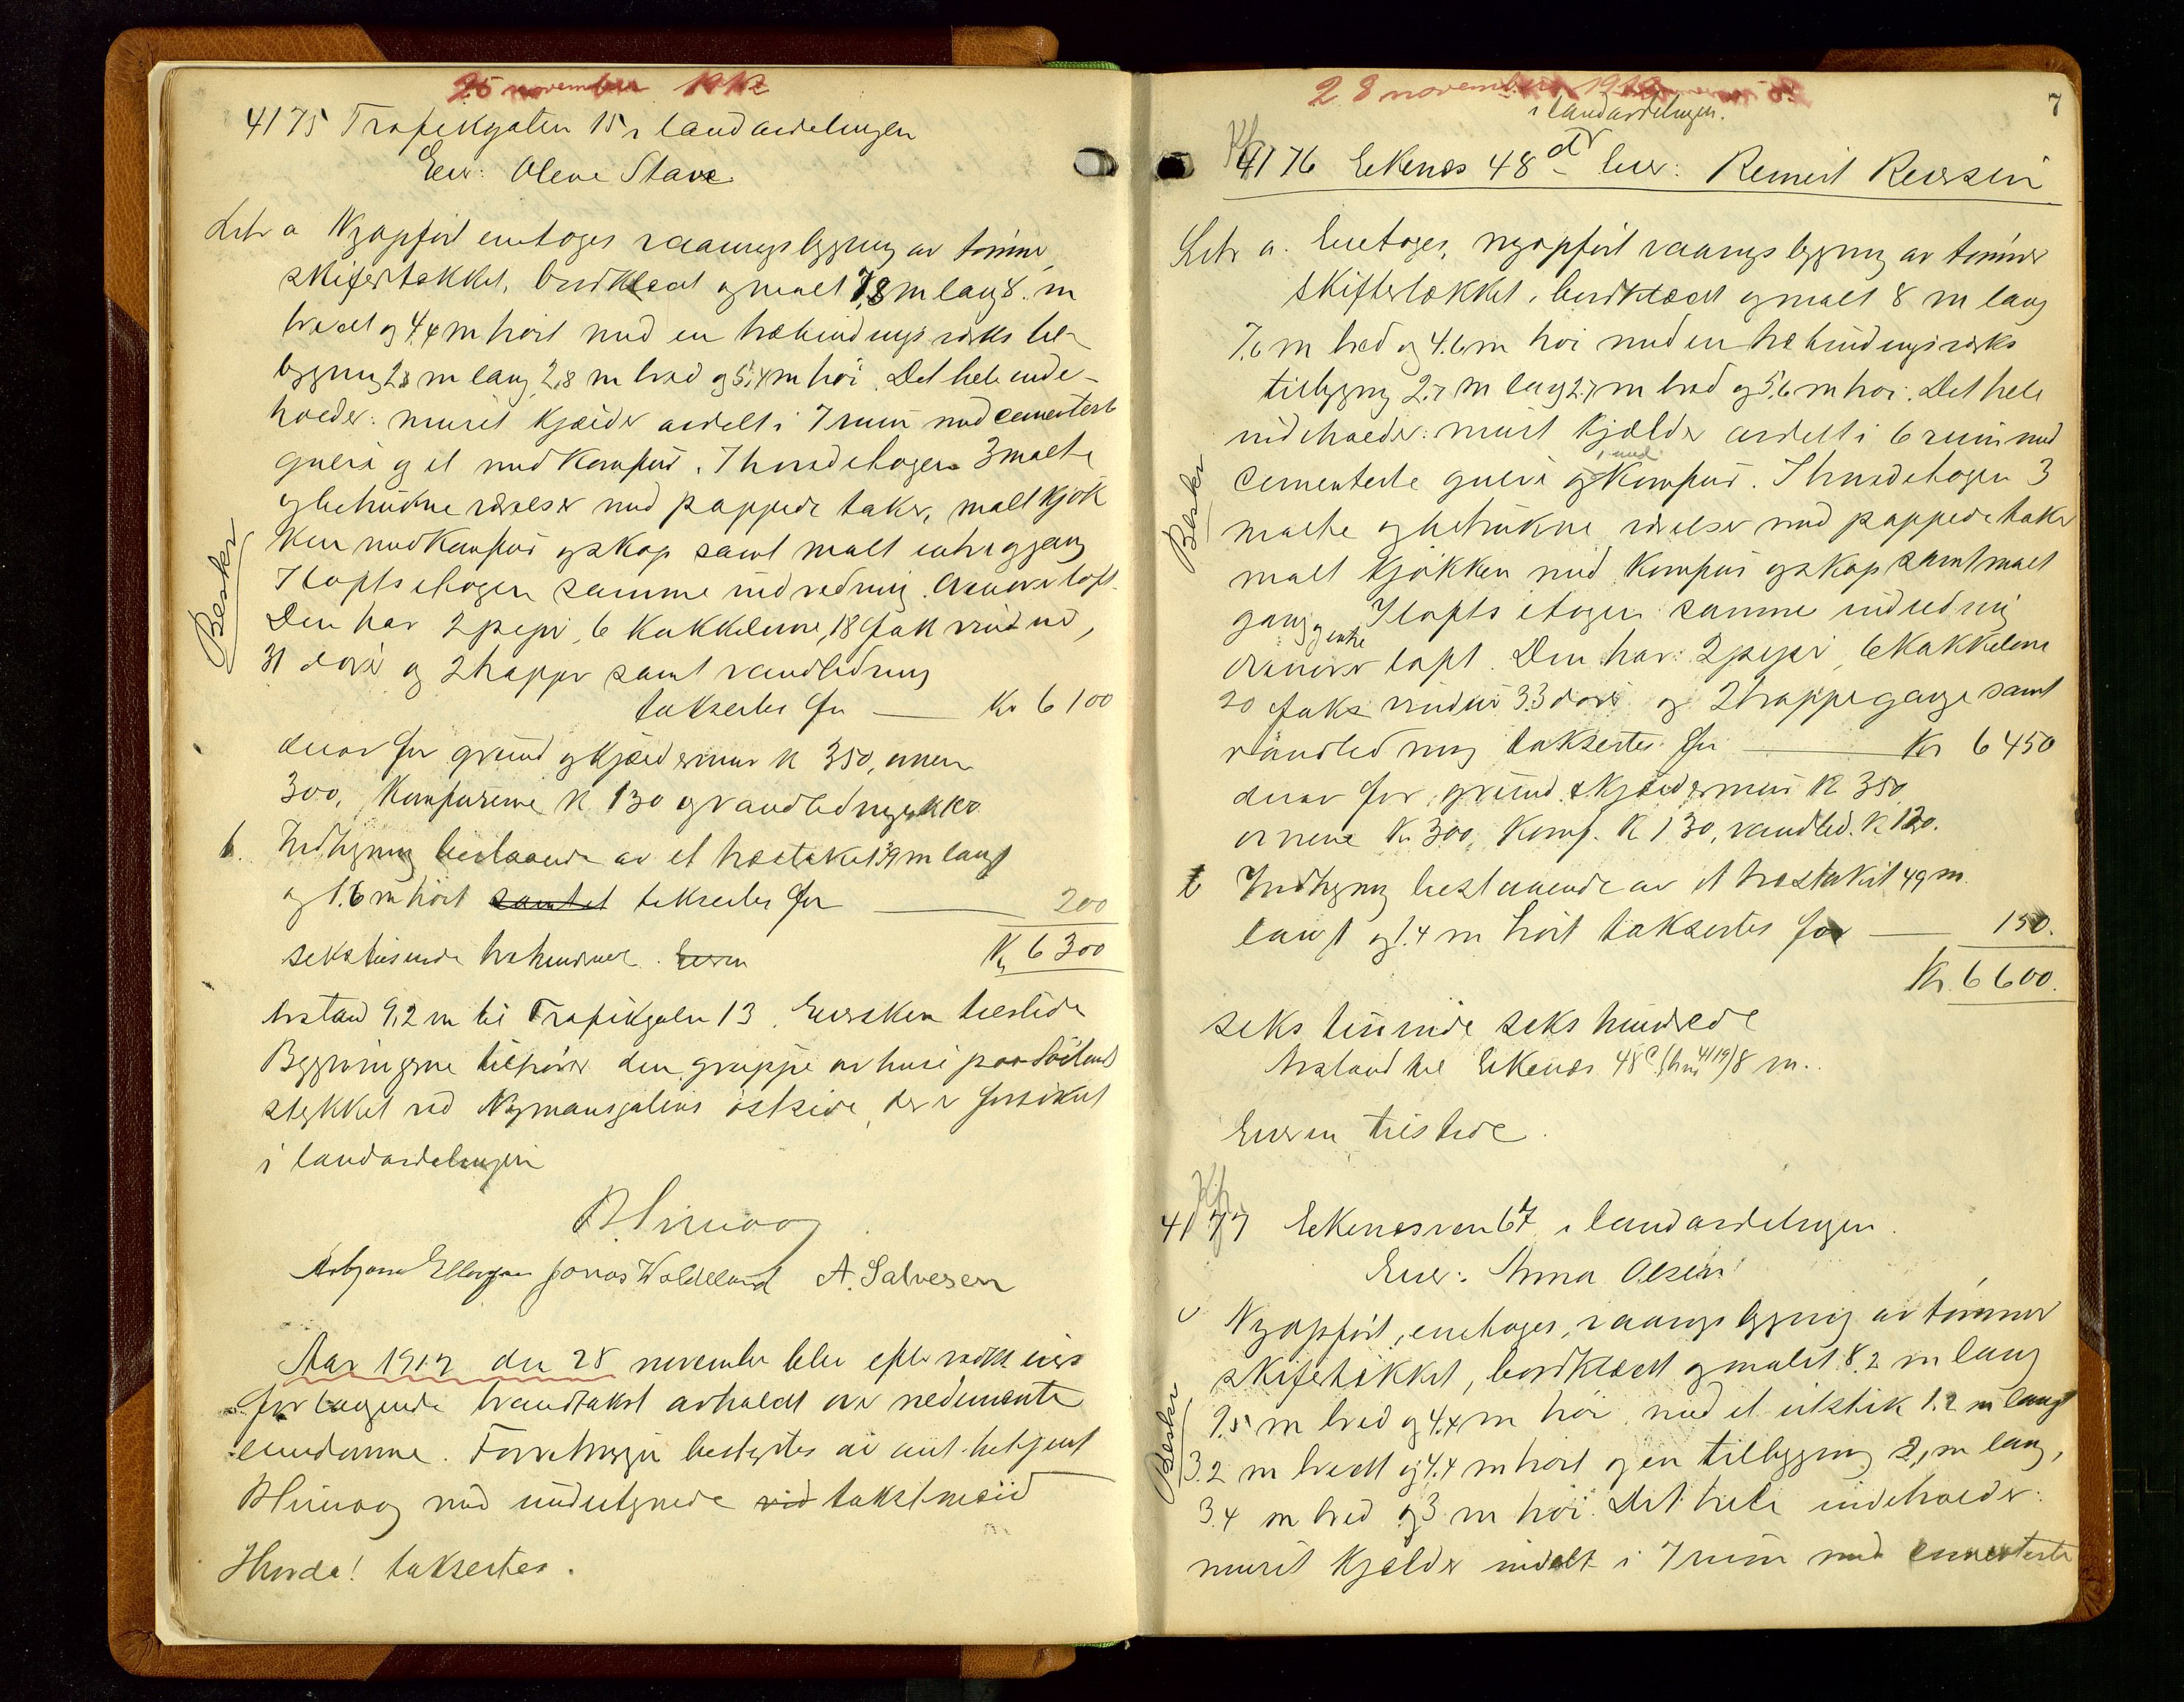 25 november 1912
4175 Trafikgaten 15 i landavdelingen
Eier: Olene Stave
Litr a Nyopført enetages vaaningsbygning av tømmer,
skifertækket, bordklædt og malt 7,8 m lang 8. m
bredt og 4,4 m høit med en træbindingsverks til-
bygning 2,8 m lang 2,8 m bred og 5,4 m høi. Det hele inde-
holder: muret kjælder avdelt i 7 rum med cementert
gulv og et med komfur. I hovedetagen 3 malte
og betrukne værelser med pappede taker, malt kjøk
ken med komfur og skap samt malt entregang
I loftsetagen samme indredning. Ovenover loft.
Den har 2 piper, 6 kakkelovne, 18 fak vinduer,
31 dører og 2 trapper samt vandledning
takseртes for — Kr 6100
derav for grund og kjældermur kr 350, ovnene
300, komfurerne kr 130 og vandledningen kr 120
b. Indhegning bestaaende av et træstaket 39 m langt
og 1.6 m høit samt et takseres for — 200
sekstusinde trehundrede. Eieren Kr 6300
Avstand 9,2 m til Trafikgaten 13. Eiersken tilstede
Bygningerne tilhører den gruppe av huse paa
stykket ved Nymansgatens østside, der er forsikret
i landavdelingen
Besk
Jonas Woldeland A. Salvesen
Aar 1912 den 28 november blev efter vedk. eiers
forlangende brandtakst avholdt over nedennævnte
eiendomme. Forretningen bestyrtes av
med undertegnede vid takstmænd
Hvorda! takseres.
28 november 1912
7
i landavdelingen.
Kfr
4176 Ekenes 48 d Eier: Reinert Reiersen
Litr a. Enetages, nyopført vaaningsbygning av tømmer
skiffertækket, bordklædt og malt 8 m lang
7.6 m bred og 4.6 m høi med en træbindingsverks
tilbygning 2.7 m lang 2.7 m bred og 5.6 m høi. Det hele
indeholder: muret kjælder avdelt i 6 rum med
cementerte gulv og med komfur. I hovedetagen 3
malte og betrukne værelser med pappede taker
malt kjøkken med komfur og skap samt malt
gang og entre I loftsetagen samme indredning
ovenover loft. Den har: 2 piper, 6 kakkelovne
20 faks vinduer 33 dører og 2 trappegange samt
vandledning takseres for — Kr 6450
derav for grund & kjældermur kr 350
ovnene Kr 300, komf. kr 130, vandled. kr 120.
b Indhegning bestaaende av et træstaket 49 m.
langt og 1.4 m høit takseres for — 150.
Kr. 6600.
seks tusinde seks hundrede
Avstand til Ekenes 48 c (br no 4119) 8 m.
Eieren tilstede.
Besk
Kfr
4177 Ekenesveien 67 i landavdelingen.
Eier: Anna Olsen
Nyopført, enetages, vaaningsbygning av tømmer
skifertækket, bordklædt og malet 8.2 m lang
9.5 m bred og 4.4 m høi, med et utstik 1.2 m langt
3.2 m bredt og 4.4 m høit og en tilbygning 2, m lang,
3.4 m bred og 3 m høi. Det hele indeholder:
muret kjælder inddelt i 7 rum med cementerte
Beskr